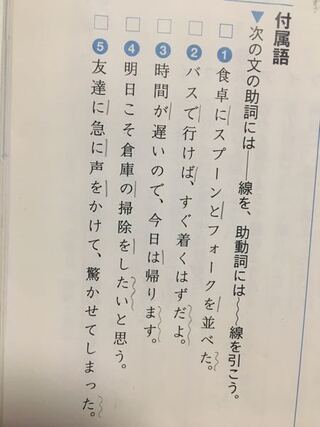 付属語
▼次の文の助詞には──線を、助動詞には〜〜線を引こう。
□❶食卓にスプーンとフォークを並べた。
□❷バスで行けば、すぐ着くはずだよ。
□❸時間が遅いので、今日は帰ります。
□❹明日こそ倉庫の掃除をしたいと思う。
□❺友達に急に声をかけて、驚かせてしまった。